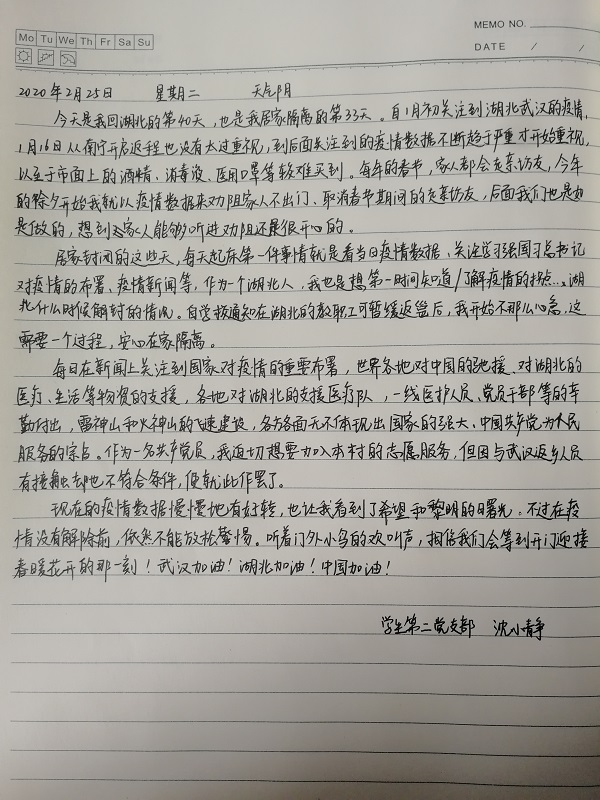 MEMO NO.
Mo Tu We Th Fr Sa Su
DATE / /
2020年2月25日 星期二 天气阴
今天是我回湖北的第40天，也是我居家隔离的第33天。自1月初关注到湖北武汉的疫情，
1月16日从南宁开启返程也没有太过重视，到后面关注到的疫情数据不断趋于严重才开始重视，
以至于市面上的酒精、消毒液、医用口罩等较难买到。每年的春节，家人都会走亲访友，今年
的除夕开始我就以疫情数据来劝阻家人不出门、取消春节期间的走亲访友，后面我们也是如
是做的，想到家人能够听进劝阻还是很开心的。
居家封闭的这些天，每天起床第一件事情就是看当日疫情数据、关注学习强国习总书记
对疫情的部署、疫情新闻等，作为一个湖北人，我也是想第一时间知道/了解疫情的拐点…、湖
北什么时候解封的情况。自学校通知在湖北的教职工可暂缓返邕后，我开始不那么心急，这
需要一个过程，安心在家隔离。
每日在新闻上关注到国家对疫情的重要布署，世界各地对中国的驰援、对湖北的
医疗、生活等物资的支援，各地对湖北的支援医疗队，一线医护人员、党员干部等的辛
勤付出，雷神山和火神山的飞速建设，各方各面无不体现出国家的强大、中国共产党为人民
服务的宗旨。作为一名共产党员，我迫切想要加入本村的志愿服务，但因与武汉返乡人员
有接触却也不符合条件，便就此作罢了。
现在的疫情数据慢慢地有好转，也让我看到了希望和黎明的曙光，不过在疫
情没有解除前，依然不能放松警惕。听着门外小鸟的欢叫声，相信我们会等到开门迎接
春暖花开的那一刻！武汉加油！湖北加油！中国加油！
学生第二党支部 沈小静